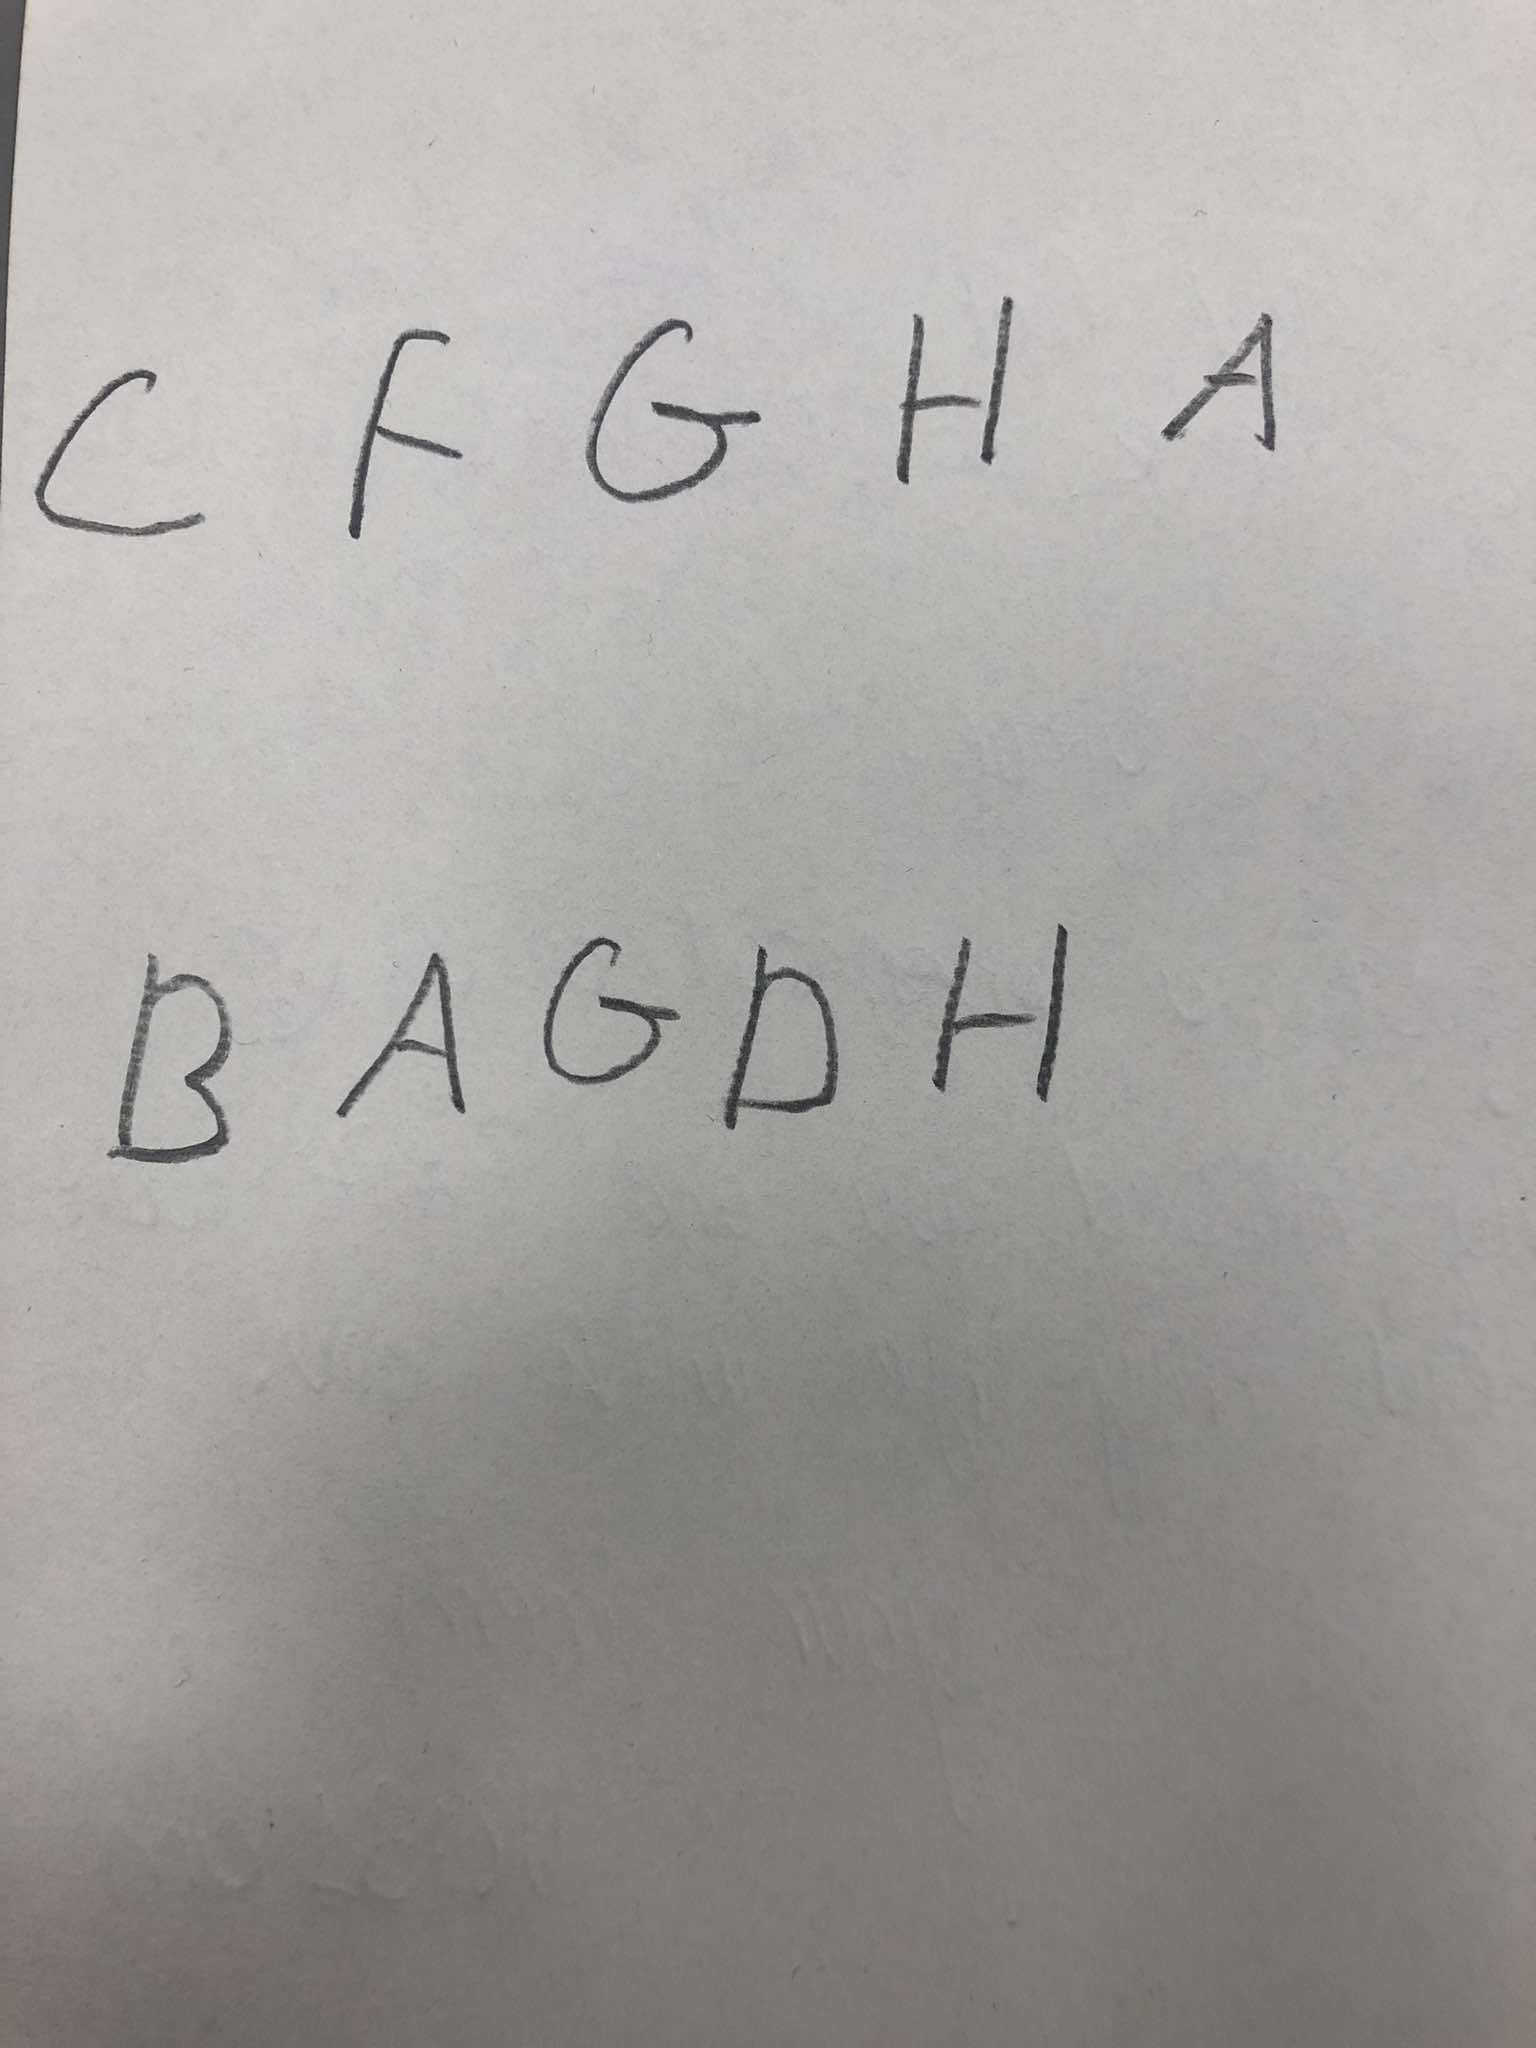 C F G H A
B A G D H